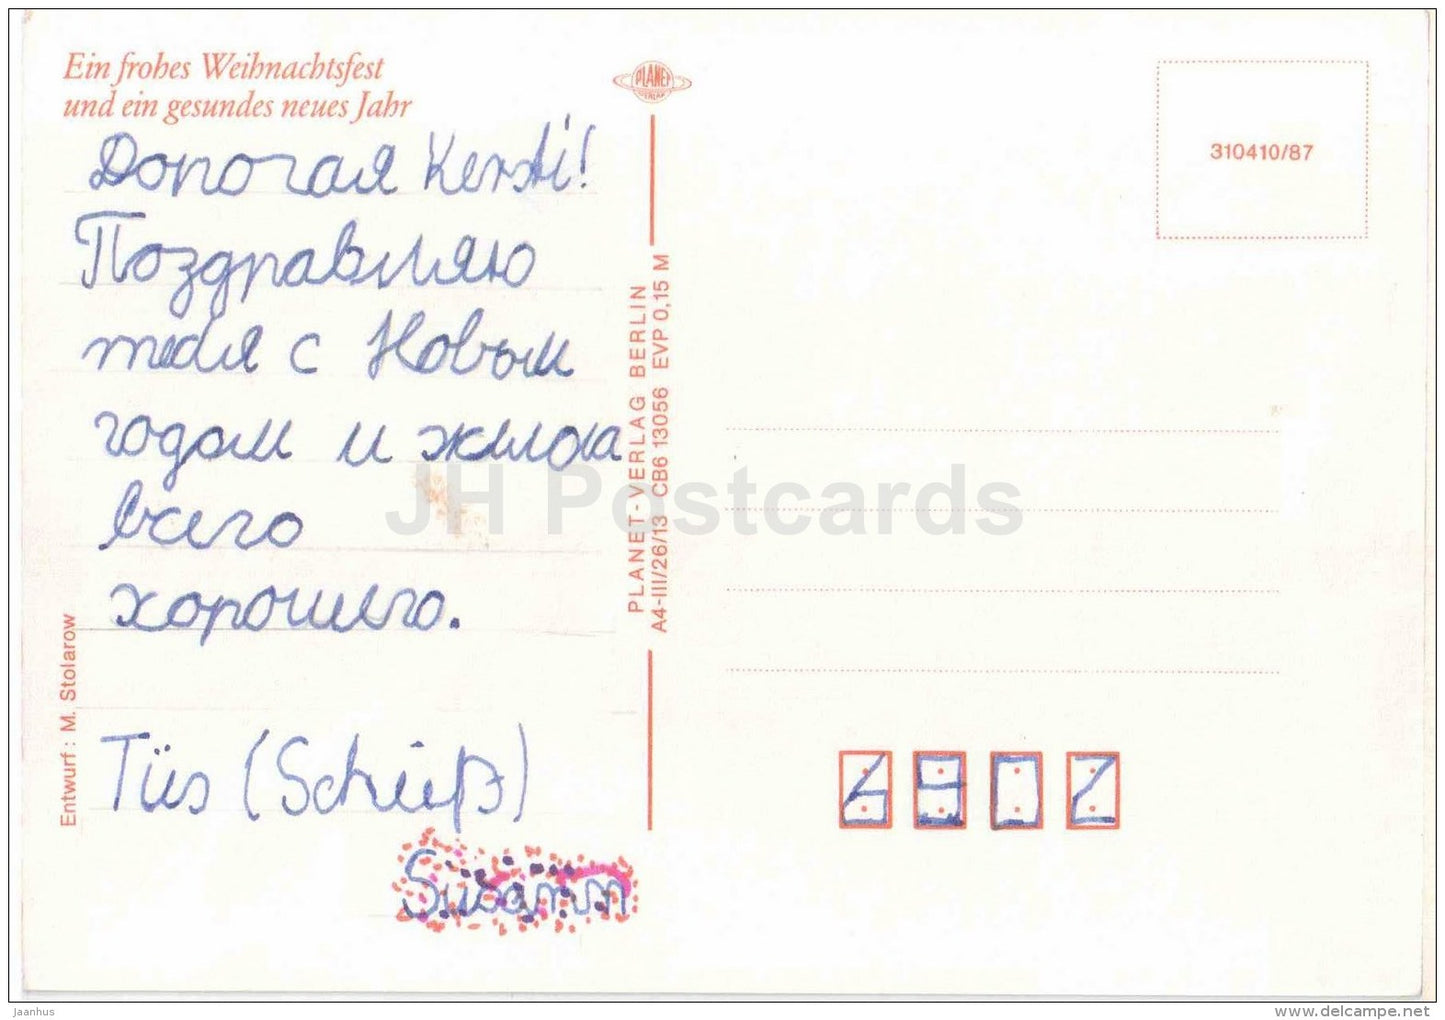 Ein frohes Weihnachtsfest
und ein gesundes neues Jahr
Дорогая Kersti!
Поздравляю
тебя с Новым
годом и желаю
всего
хорошего.
Tüs (Scheiß)
Susann
Entwurf: M. Stolarow
PLANET
VERLAG
PLANET-VERLAG BERLIN
A4-III/26/13 CB6 13056 EVP 0,15 M
310410/87
6902
JH Postcards
jaanhus
www.delcampe.net